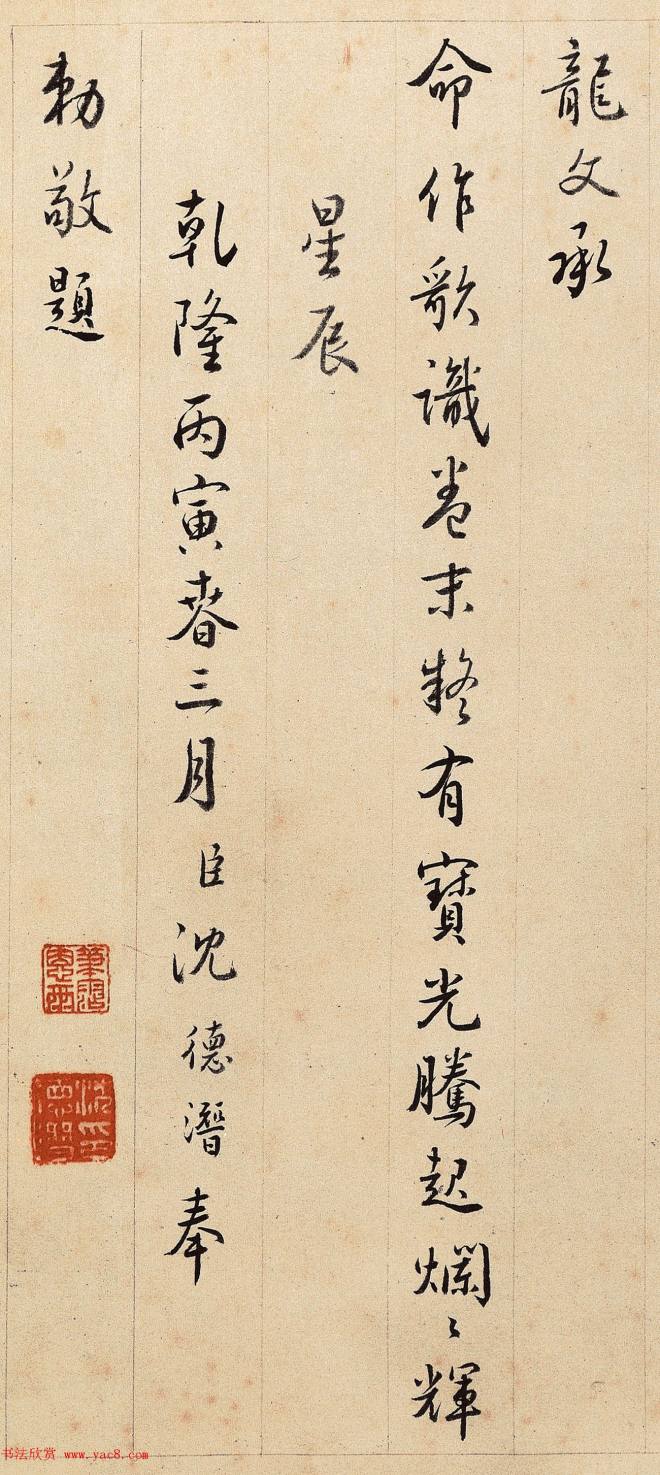 龍文承
命作歌識卷末疑有寶光騰起爛〻輝
星辰
乾隆丙寅春三月臣沈德潛奉
勅敬題
沈印德潛
书法欣赏 www.yac8.com